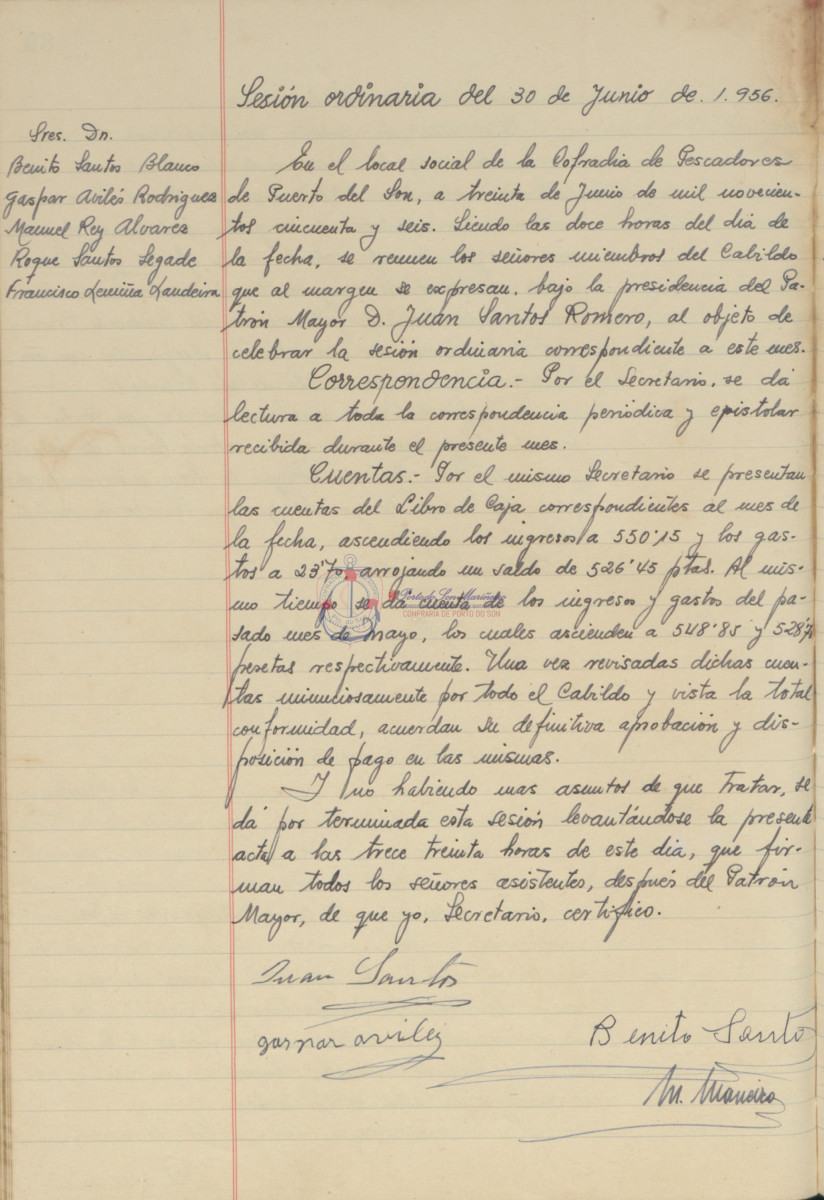 Sesión ordinaria del 30 de Junio de 1.956.
Sres. Dn.
Benito Santos Blanco
Gaspar Avilés Rodriguez
Manuel Rey Alvarez
Roque Santos Segade
Francisco Lemiña Landeira
En el local social de la Cofradia de Pescadores
de Puerto del Son, a treinta de Junio de mil novecien-
tos cincuenta y seis. Siendo las doce horas del dia de
la fecha, se reunen los señores miembros del Cabildo
que al margen se expresan, bajo la presidencia del Pa-
trón Mayor D. Juan Santos Romero, al objeto de
celebrar la sesión ordinaria correspondiente a este mes.
Correspondencia.- Por el Secretario, se dá
lectura a toda la correspondencia periódica y epistolar
recibida durante el presente mes.
Cuentas.- Por el mismo Secretario se presentan
las cuentas del Libro de Caja correspondientes al mes de
la fecha, ascendiendo los ingresos a 550'15 y los gas-
tos a 23'70 arrojando un saldo de 526'45 ptas. Al mis-
mo tiempo se dá cuenta de los ingresos y gastos del pa-
sado mes de mayo, los cuales ascienden a 548'85 y 528'71
pesetas respectivamente. Una vez revisadas dichas cuen-
tas minuciosamente por todo el Cabildo y vista la total
conformidad, acuerdan su definitiva aprobación y dis-
posición de pago en las mismas.
Y no habiendo mas asuntos de que tratar, se
dá por terminada esta sesión levantándose la presente
acta a las trece treinta horas de este dia, que fir-
man todos los señores asistentes, después del Patrón
Mayor, de que yo, Secretario, certifico.
Juan Santos
gaspar aviles
Benito Santo
M. Maneiro
Portodo Son Mariñeiro
CONFRARIA DE PORTO DO SON